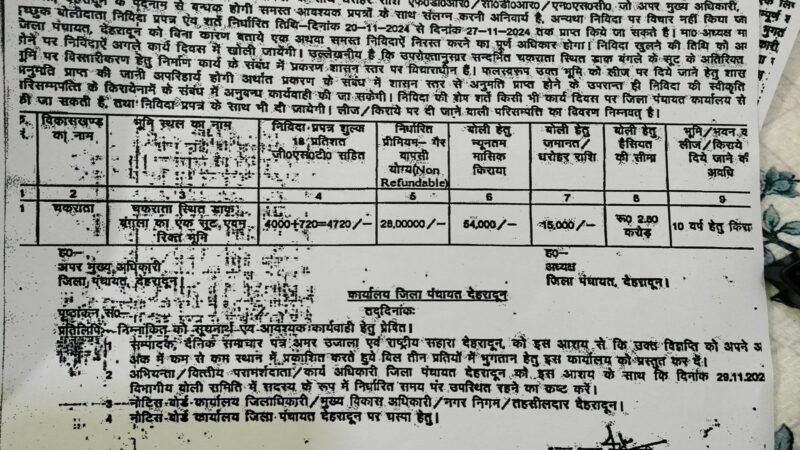 के पदनाम से बन्धक होगी समस्त आवश्यक प्रपत्रों के साथ संलग्न करनी अनिवार्य है, अन्यथा निविदा पर विचार नहीं किया जा
च्छुक बोलीदाता निविदा प्रपत्र एंव शर्ते निर्धारित तिथि–दिनांक–20/11/2024 से दिनांक 27–11–2024 तक प्राप्त किये जा सकते है। मा० अध्यक्ष
जिला पंचायत, देहरादून को बिना कारण बताये एक अथवा समस्त निविदाऐं निरस्त करने का पूर्ण अधिकार होगा। निविदा खुलने की तिथि को
होने पर निविदाऐं अगले कार्य दिवस में खोली जायेंगी। उल्लेखनीय है कि उपरोक्तानुसार सन्दर्भित चकराता स्थित डाक बंगले के सूट के अतिरिक्त
भूमि पर विस्तारीकरण हेतु निर्माण कार्य के संबंध में प्रकरण शासन स्तर पर विचाराधीन है। फलस्वरूप उक्त भूमि को लीज पर दिये जाने हेतु शास
अनुमति प्राप्त की जानी अपरिहार्य होगी अर्थात प्रकरण के संबंध में शासन स्तर से अनुमति प्राप्त होने के उपरान्त ही निविदा की स्वीकृति
परिसम्पत्ति के किरायेनामे के संबंध में अनुबन्ध कार्यवाही की जा सकेगी। निविदा की शेष शर्ते किसी भी कार्य दिवस पर जिला पंचायत कार्यालय से
की जा सकती है, तथा निविदा प्रपत्र के साथ भी दी जायेगी। लीज/किराये पर दी जाने वाली परिसम्पत्ति का विवरण निम्नवत् है।
विकासखण्ड का नाम
भूमि स्थल का नाम
निविदा–प्रपत्र शुल्क 18 प्रतिशत जी०एस०टी० सहित
निर्धारित प्रीमियम– गैर वापसी योग्य(Non Refundable)
बोली हेतु न्यूनतम मासिक किराया
बोली हेतु जमानत/ धरोहर राशि
बोली हेतु हैसियत की सीमा
भूमि/भवन व लीज/किराये दिये जाने की अवधि
1 2 3 4 5 6 7 8 9
1 चकराता
चकराता स्थित डाक बंगला का एक सूट एवम रिक्त भूमि
4000+720=4720/–
28,00000/–
54,000/–
15,000/–
रू0 2.80 करोड़
10 वर्ष हेतु
ह०–
अपर मुख्य अधिकारी
जिला पंचायत, देहरादून।
ह०–
अध्यक्ष
जिला पंचायत, देहरादून।
कार्यालय जिला पंचायत देहरादून
पृष्ठांकन सं०–
तद्दिनांक
प्रतिलिपि– निम्नांकित को सूचनार्थ एवं आवश्यक कार्यवाही हेतु प्रेषित।
1 सम्पादक, दैनिक समाचार पत्र अमर उजाला एवं राष्ट्रीय सहारा देहरादून, को इस आशय से कि उक्त विज्ञप्ति को अपने
अंक में कम से कम स्थान में प्रकाशित करते हुये बिल तीन प्रतियों में भुगतान हेतु इस कार्यालय को प्रस्तुत कर दें।
2 अभियन्ता/वित्तीय परामर्शदाता/कार्य अधिकारी जिला पंचायत देहरादून को इस आशय के साथ कि दिनांक 29.11.202
विभागीय बोली समिति में सदस्य के रूप में निर्धारित समय पर उपस्थित रहने का कष्ट करें।
3 नोटिस बोर्ड कार्यालय जिलाधिकारी/मुख्य विकास अधिकारी/नगर निगम/तहसीलदार देहरादून।
4 नोटिस बोर्ड कार्यालय जिला पंचायत देहरादून पर चस्पा हेतु।